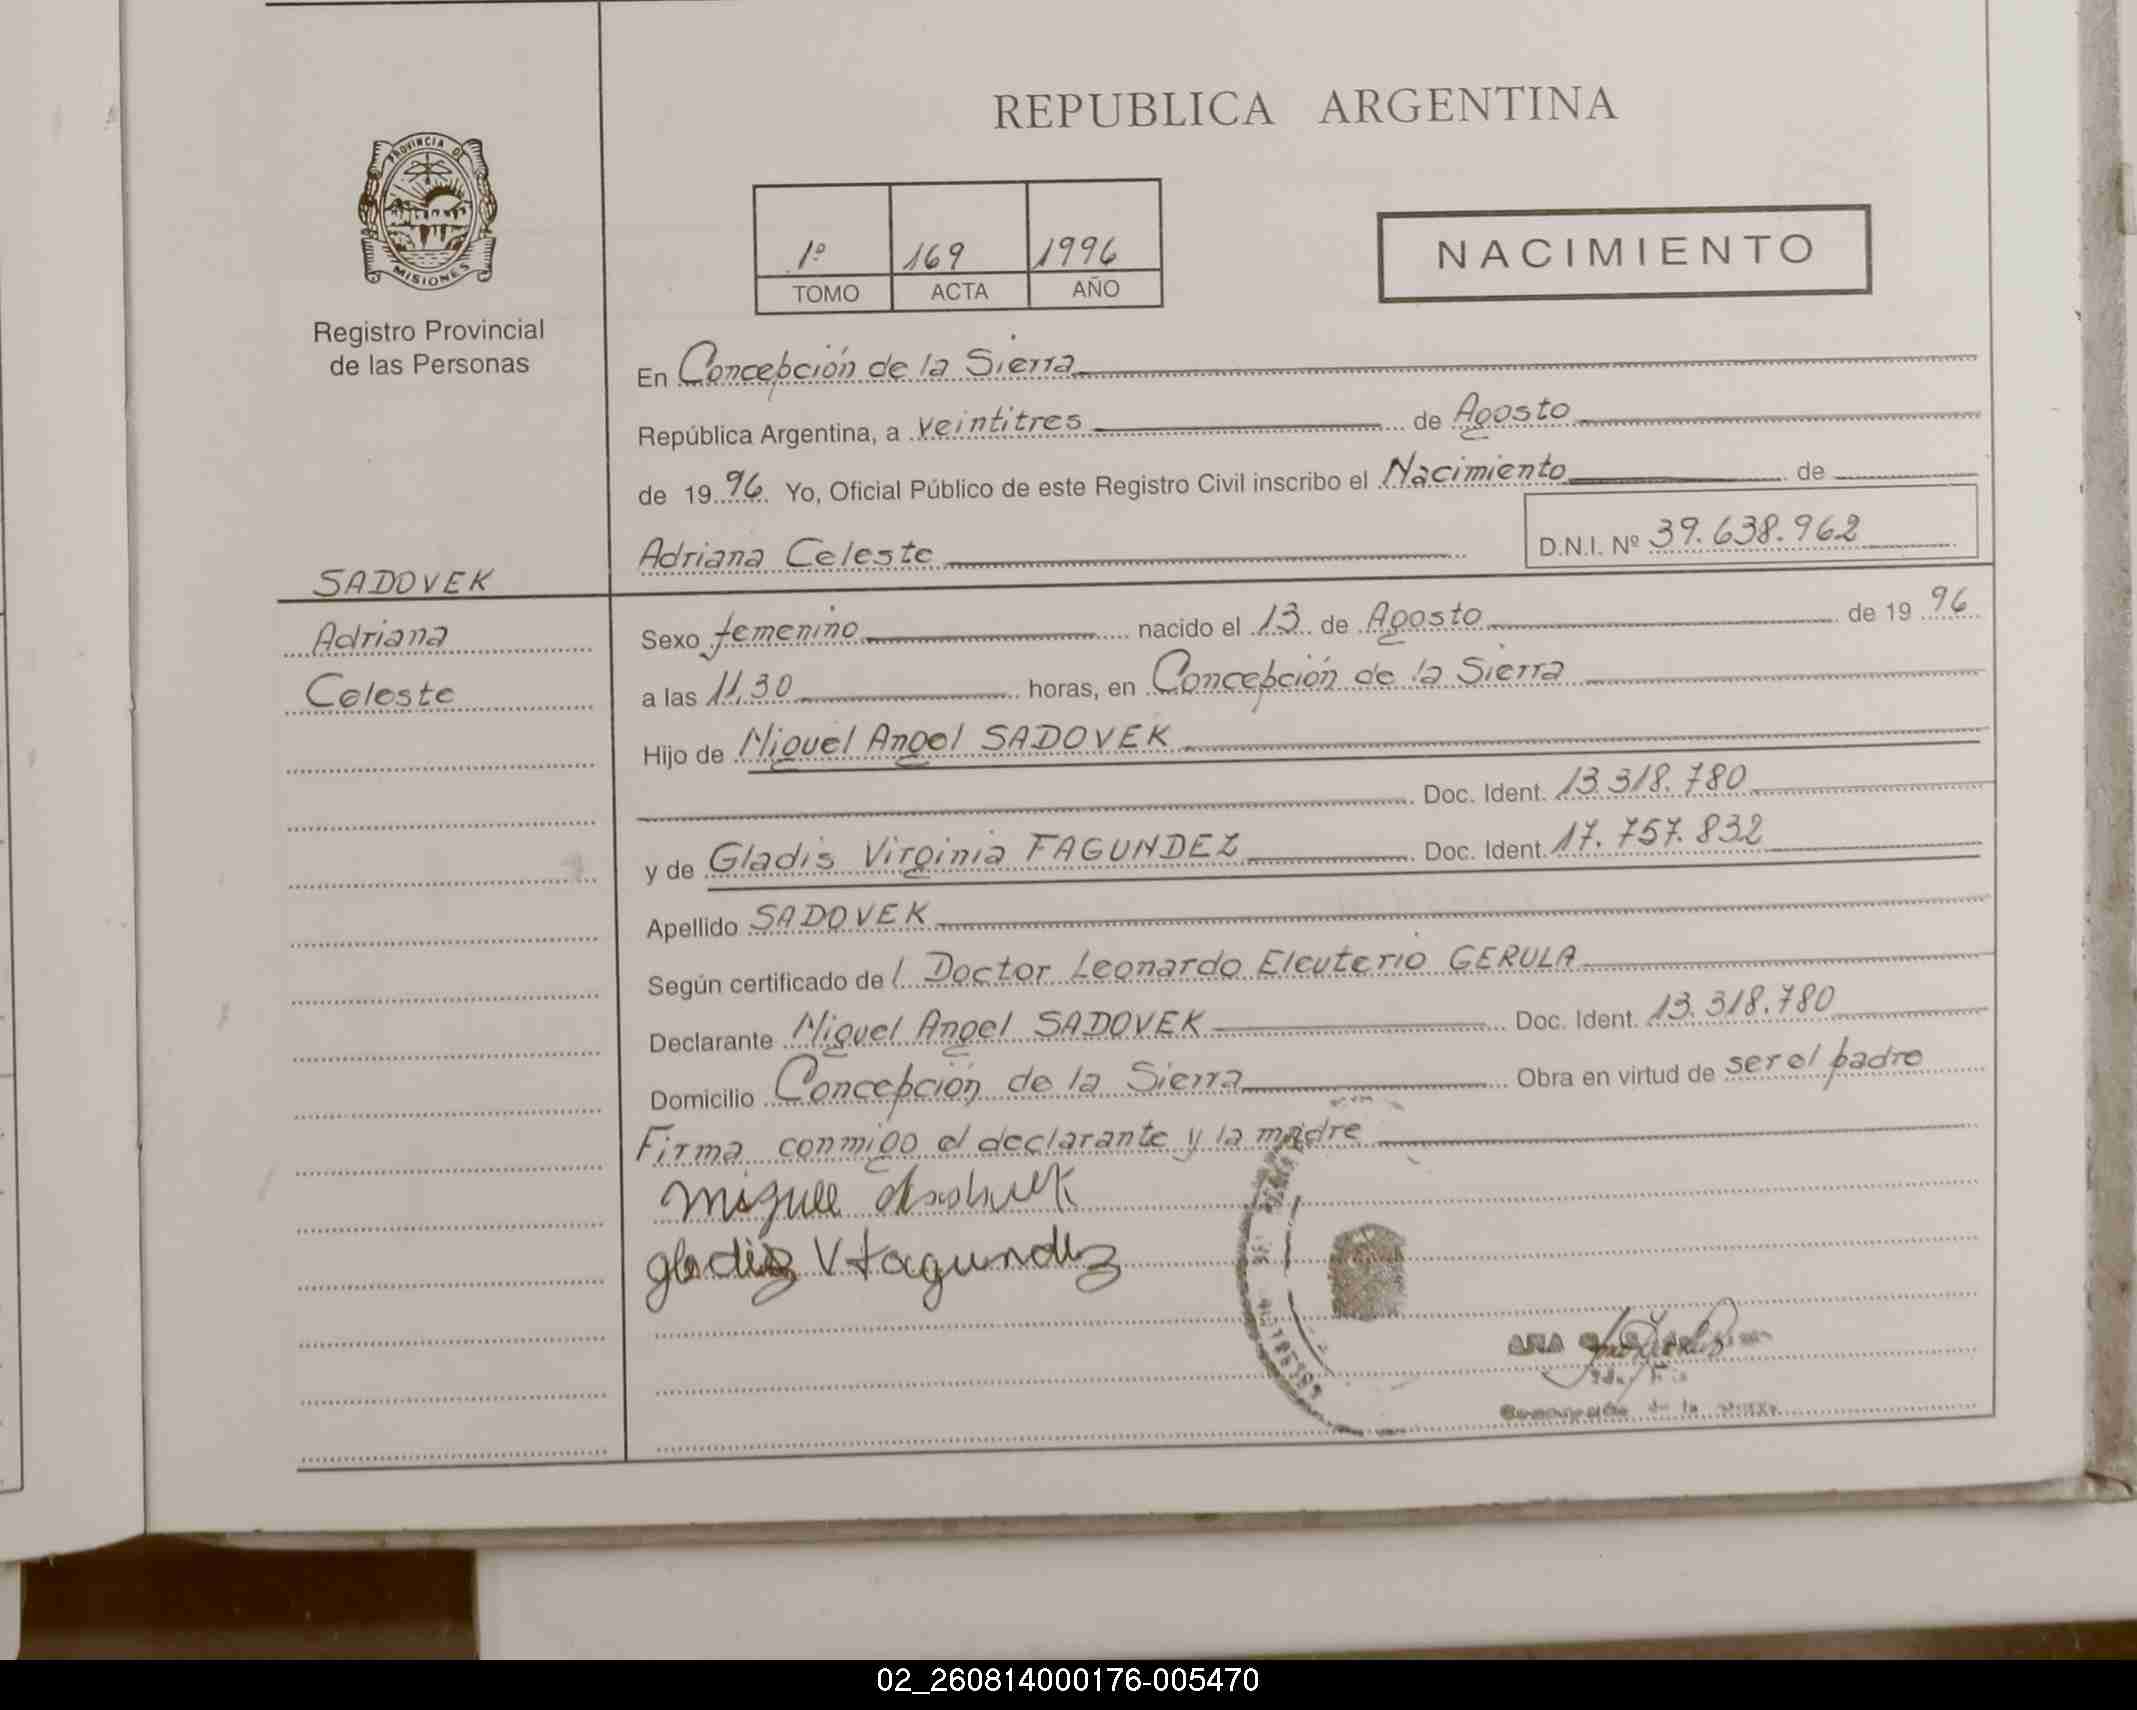 REPUBLICA ARGENTINA
PROVINCIA DE
MISIONES
Registro Provincial
de las Personas
1º 169 1996
TOMO ACTA AÑO
NACIMIENTO
En Concepción de la Sierra
República Argentina, a veintitres de Agosto
de 1996 Yo, Oficial Público de este Registro Civil inscribo el Nacimiento de
Adriana Celeste D.N.I. Nº 39.638.962
SADOVEK
Adriana
Celeste
Sexo femenino nacido el 13 de Agosto de 1996
a las 11,30 horas, en Concepción de la Sierra
Hijo de Miguel Angel SADOVEK
Doc. Ident. 13.318.780
y de Gladis Virginia FAGUNDEZ Doc. Ident. 17.757.832
Apellido SADOVEK
Según certificado de l Doctor Leonardo Eleuterio GERULA
Declarante Miguel Angel SADOVEK Doc. Ident. 13.318.780
Domicilio Concepción de la Sierra Obra en virtud de ser el padre
Firma conmigo el declarante y la madre
gladiz V fagundez
ANA
02_260814000176-005470